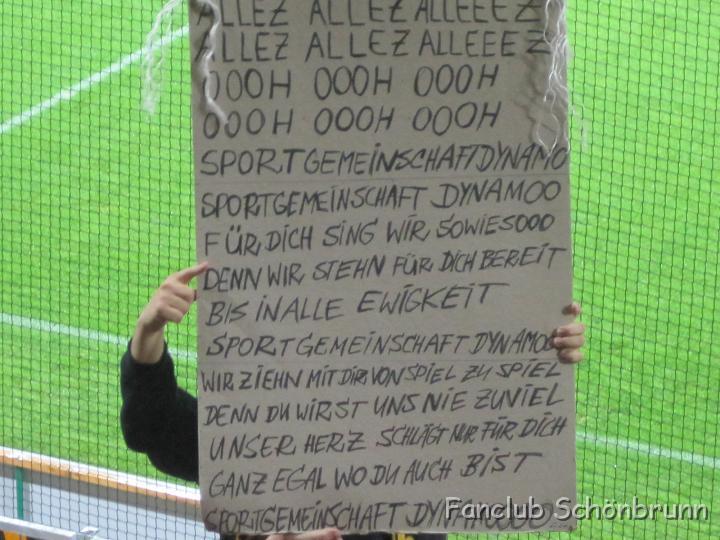 ALLEZ ALLEZ ALLEEEZ
ALLEZ ALLEZ ALLEEEZ
OOOH OOOH OOOH
OOOH OOOH OOOH
SPORTGEMEINSCHAFT DYNAMO
SPORTGEMEINSCHAFT DYNAMOO
FÜR DICH SING WIR SOWIESOOO
DENN WIR STEHN FÜR DICH BEREIT
BIS IN ALLE EWIGKEIT
SPORTGEMEINSCHAFT DYNAMOO
WIR ZIEHN MIT DIR VON SPIEL ZU SPIEL
DENN DU WIRST UNS NIE ZUVIEL
UNSER HERZ SCHLÄGT NUR FÜR DICH
GANZ EGAL WO DU AUCH BIST
SPORTGEMEINSCHAFT DYNAMOOOO
Fanclub Schönbrunn